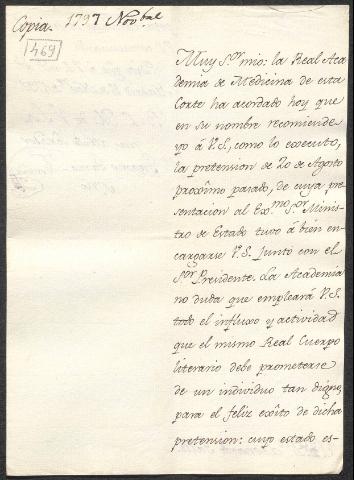 Copia. 1797 Nov.bre
1469
Muy S.or mio: la Real Aca-
demia de Medicina de esta
Corte ha acordado hoy que
en su nombre recomiende
yo á V.S., como lo executo,
la pretension de 20 de Agosto
proximo pasado, de cuya pre-
sentacion al Ex.mo S.or Minis-
tro de Estado tuvo á bien en-
cargarse V.S. junto con el
S.or Presidente. La Academia
no duda que empleará V.S.
todo el influxo y actividad
que el mismo Real Cuerpo
literario debe prometerse
de un individuo tan digno,
para el feliz exîto de dicha
pretension: cuyo estado es-